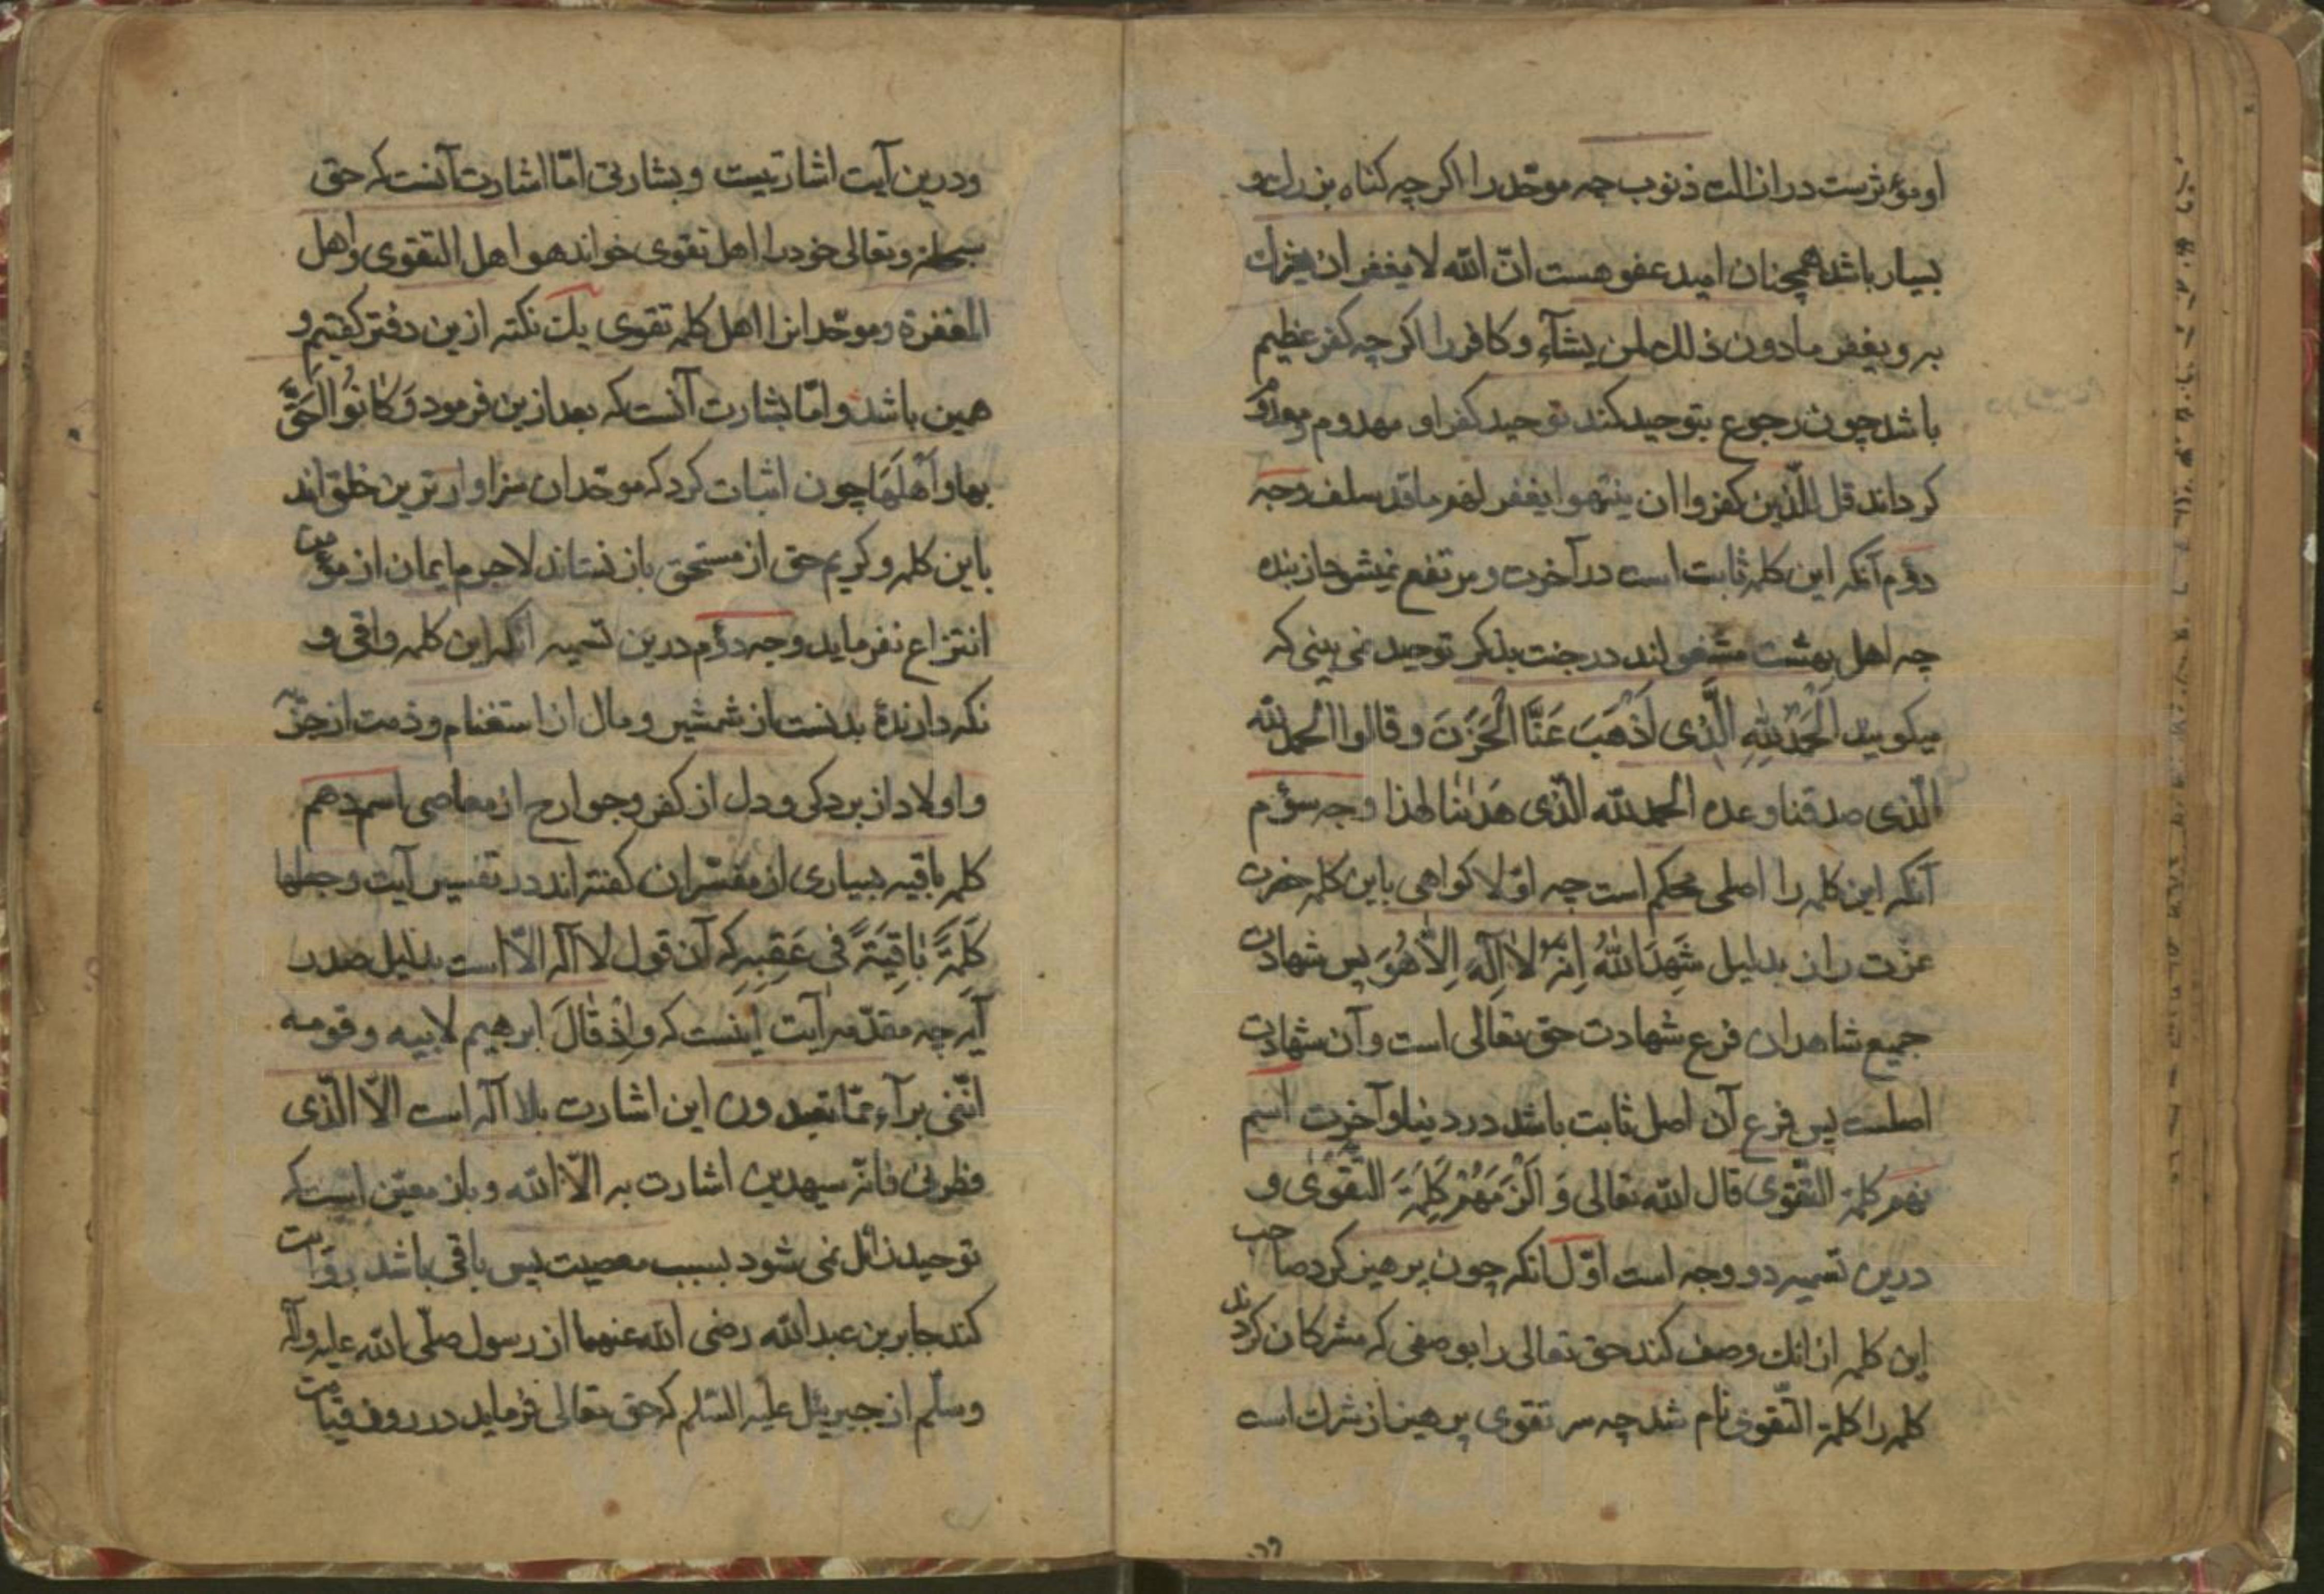 او مؤثرست در ازالت ذنوب چه موحّد را اکرچه کناه بزرك و
بسیار باشد همچنان امید عفو هست انّ الله لا یغفر ان یشرك
به و یغفر مادون ذلك لمن یشآء و کافر را اکرچه کفر عظیم
باشد چون رجوع بتوحید کند توحید کفر او مهدوم و معدوم
کرداند قل للّذین کفروا ان ینتهوا یغفر لهم ما قد سلف وجه
دوّم آنکه این کلمه ثابت است در آخرت و مرتفع نمیشود از بنده
چه اهل بهشت مشغولند در جنت بذکر توحید نمی بینی که
میکویند اَلْحَمْدُ لِلّٰهِ الَّذی اَذْهَبَ عَنَّا الْحَزَنَ و قالوا الحمد لله
الّذی صدقنا وعده الحمد لله الّذی هَدٰینٰا لهذا وجه سوّم
آنکه این کلمه را اصلی محکم است چه اوّلا کواهی باین کلمه حضرت
عزّت راز بدلیل شَهِدَ اللّٰهُ اَنَّهُ لٰا اِلٰهَ اِلّٰا هُوَ پس شهادت
جمیع شاهدان فرع شهادت حق تعالی است و آن شهادت
اصلست پس فرع آن اصل ثابت باشد در دنیا و آخرت اسم
نهم کلمة التّقوی قال الله تعالی وَ اَلْزَمَهُمْ کَلِمَةَ التَّقْوٰی و
درین تسمیه دو وجه است اوّل انکه چون پرهیز کرد صاحب
این کلمه از انك وصف کند حق تعالی را بوصفی که مشرکان کردند
کلمه را کلمة التّقوی نام شد چه سر تقوی پرهیز از شرك است
ودرین آیت اشارتیست و بشارتی امّا اشارت آنست که حق
سبحانه و تعالی خود را اهل تقوی خواند هو اهل التقوی و اهل
المغفرة و موحّدانرا اهل کلمه تقوی یك نکته ازین دفتر کفتیم و
همین باشد و امّا بشارت آنست که بعد ازین فرمود وَ کٰانُوا اَحَقَّ
بها وَ اَهْلَهَا چون اثبات کرد که موحّدان سزاوارترین خلق اند
باین کلمه و کریم حق از مستحق باز نستاند لاجرم ایمان از مؤمن
انتزاع نفرماید وجه دوّم درین تسمیه انکه این کلمه واقی و
نکه دارندهٔ بدنست از شمشیر و مال از استغنام و ذمت از جزیه
و اولاد از بردکی و دل از کفر و جوارح از معاصی اسم دهم
کلمه باقیه بسیاری از مفسّران کفته اند در تفسیر آیت و جعلها
کَلِمَةً بٰاقِیَةً فی عَقِبِهِ که آن قول لا اله الّا است بدلیل صدر
آیه چه مقدّمه آیت اینست که وَ اِذْ قٰالَ ابرهیم لابیه و قومه
انّنی برآء ممّا تعبدون این اشارت بلا اله است الّا الّذی
فطرنی فانّه سیهدین اشارت به الّا الله و باز معیّن است که
توحید زائل نمی شود بسبب معصیت پس باقی باشد روایت
کند جابر بن عبدالله رضی الله عنهما از رسول صلّی الله علیه و آله
وسلّم از جبریئل علیه السّلم که حق تعالی فرماید در روز قیامت